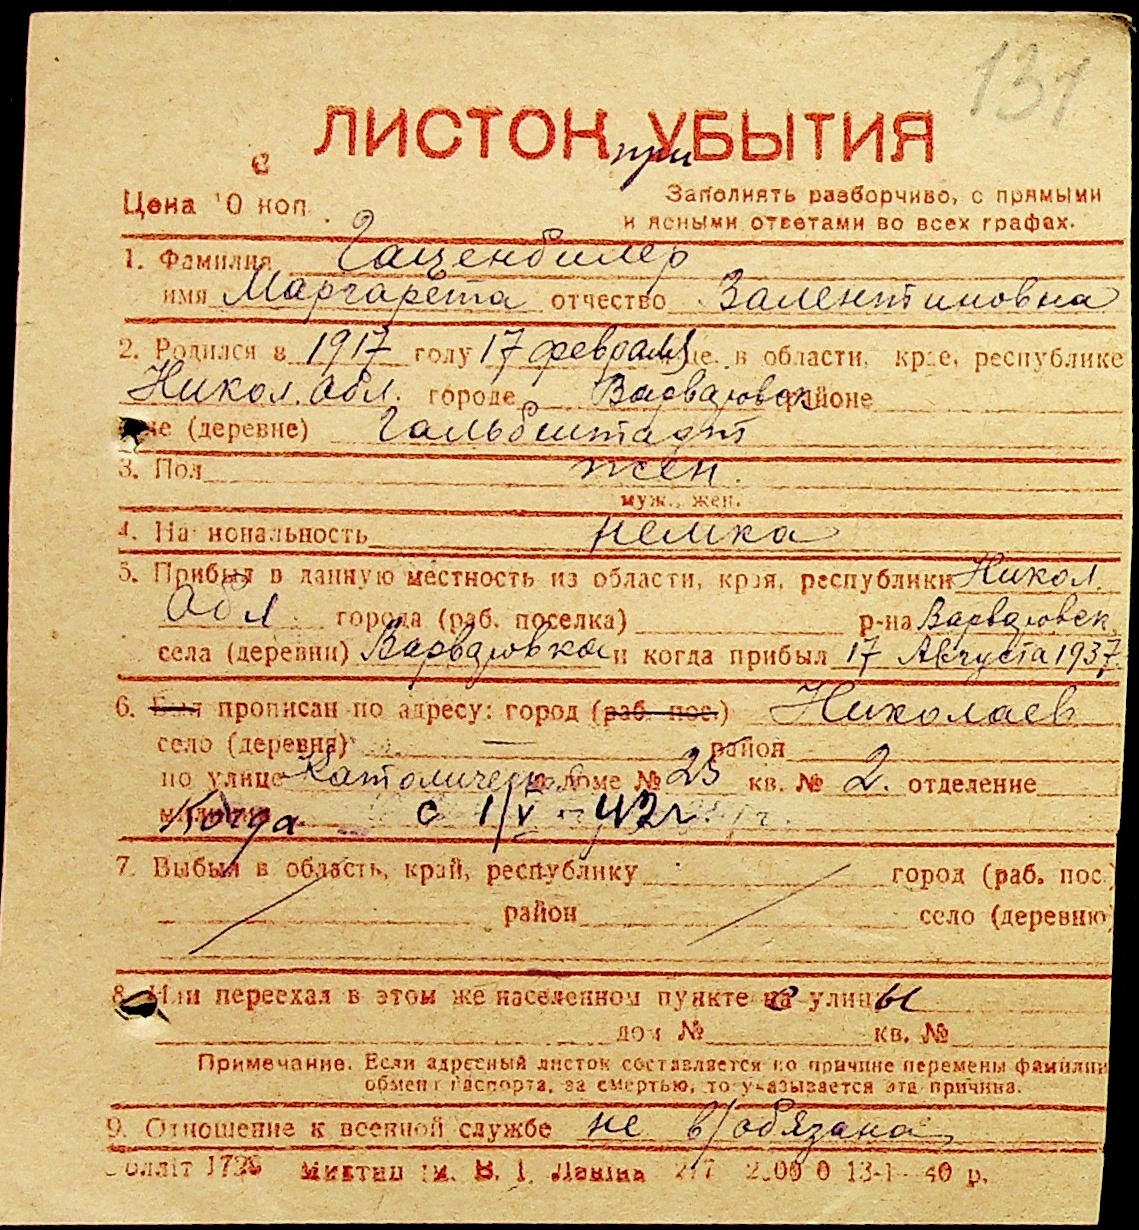 131
ЛИСТОК УБЫТИЯ
при
Цена 10 коп.
Заполнять разборчиво, с прямыми
и ясными ответами во всех графах.
1. Фамилия Гаценбилер
имя Маргарета отчество Валентиновна
2. Родился в 1917 году 17 февраля в области, крае, республике
Никол. Обл. городе Варваровск районе
(деревне) Гальбштадт
3. Пол жен.
муж., жен.
4. Национальность немка
5. Прибыл в данную местность из области, края, республики Никол.
Обл города (раб. поселка) р-на Варваровск
села (деревни) Варваровка и когда прибыл 17 Августа 1937
6. Был прописан по адресу: город (раб. пос.) Николаев
село (деревня) — район
по улице доме № 25 кв. № 2. отделение
Когда с 1/V - 42 г.
7. Выбыл в область, край, республику город (раб. пос.)
район село (деревню)
8. Или переехал в этом же населенном пункте с улицы
дом № кв. №
Примечание. Если адресный листок составляется по причине перемены фамилии
обмен паспорта, за смертью, то указывается эта причина.
9. Отношение к военной службе не в/обязана
ім. В. І. Леніна 40 р.